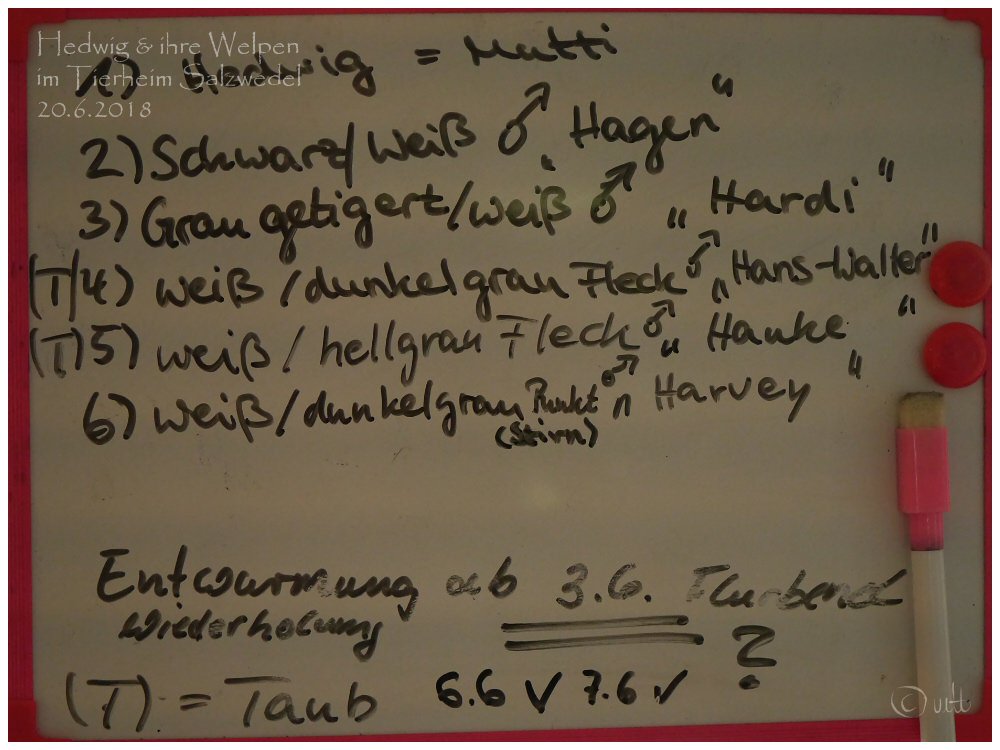 Hedwig & ihre Welpen
im Tierheim Salzwedel
20.6.2018
1) Hedwig = Mutti
2) Schwarz/weiß ♂ "Hagen"
3) Grau getigert/weiß ♂ "Hardi"
(T)4) weiß/dunkelgrau Fleck ♂ "Hans-Walter"
(T)5) weiß/hellgrau Fleck ♂ "Hauke"
6) weiß/dunkelgrau Punkt ♂ "Harvey"
(Stirn)
Entwurmung ab 3.6. Flurbend
Wiederholung ?
(T) = Taub 6.6 ✓ 7.6 ✓
© uitt